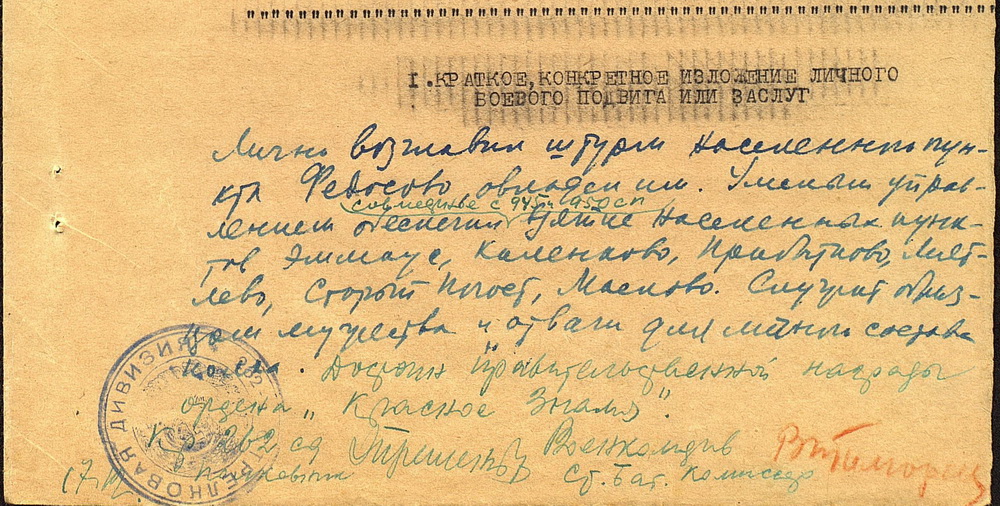 I. КРАТКОЕ, КОНКРЕТНОЕ ИЗЛОЖЕНИЕ ЛИЧНОГО
БОЕВОГО ПОДВИГА ИЛИ ЗАСЛУГ
Лично возглавил штурм населенного пун-
кта Федосово, овладел им. Умелым управ-
совместные с 945 и 950 сп
лением обеспечил взятие населенных пунк-
тов Эммаус, Каленково, Прибытково,
лево, Старый Погост, Маслово. Служит образ-
цом мужества и отваги для личного состава
полка. Достоин правительственной награды
ордена „Красное Знамя".
К-р 262 сд Терешенков Военкомдив
Полковник Ст. Бат. Комиссар
17.12
ДИВИЗИЯ